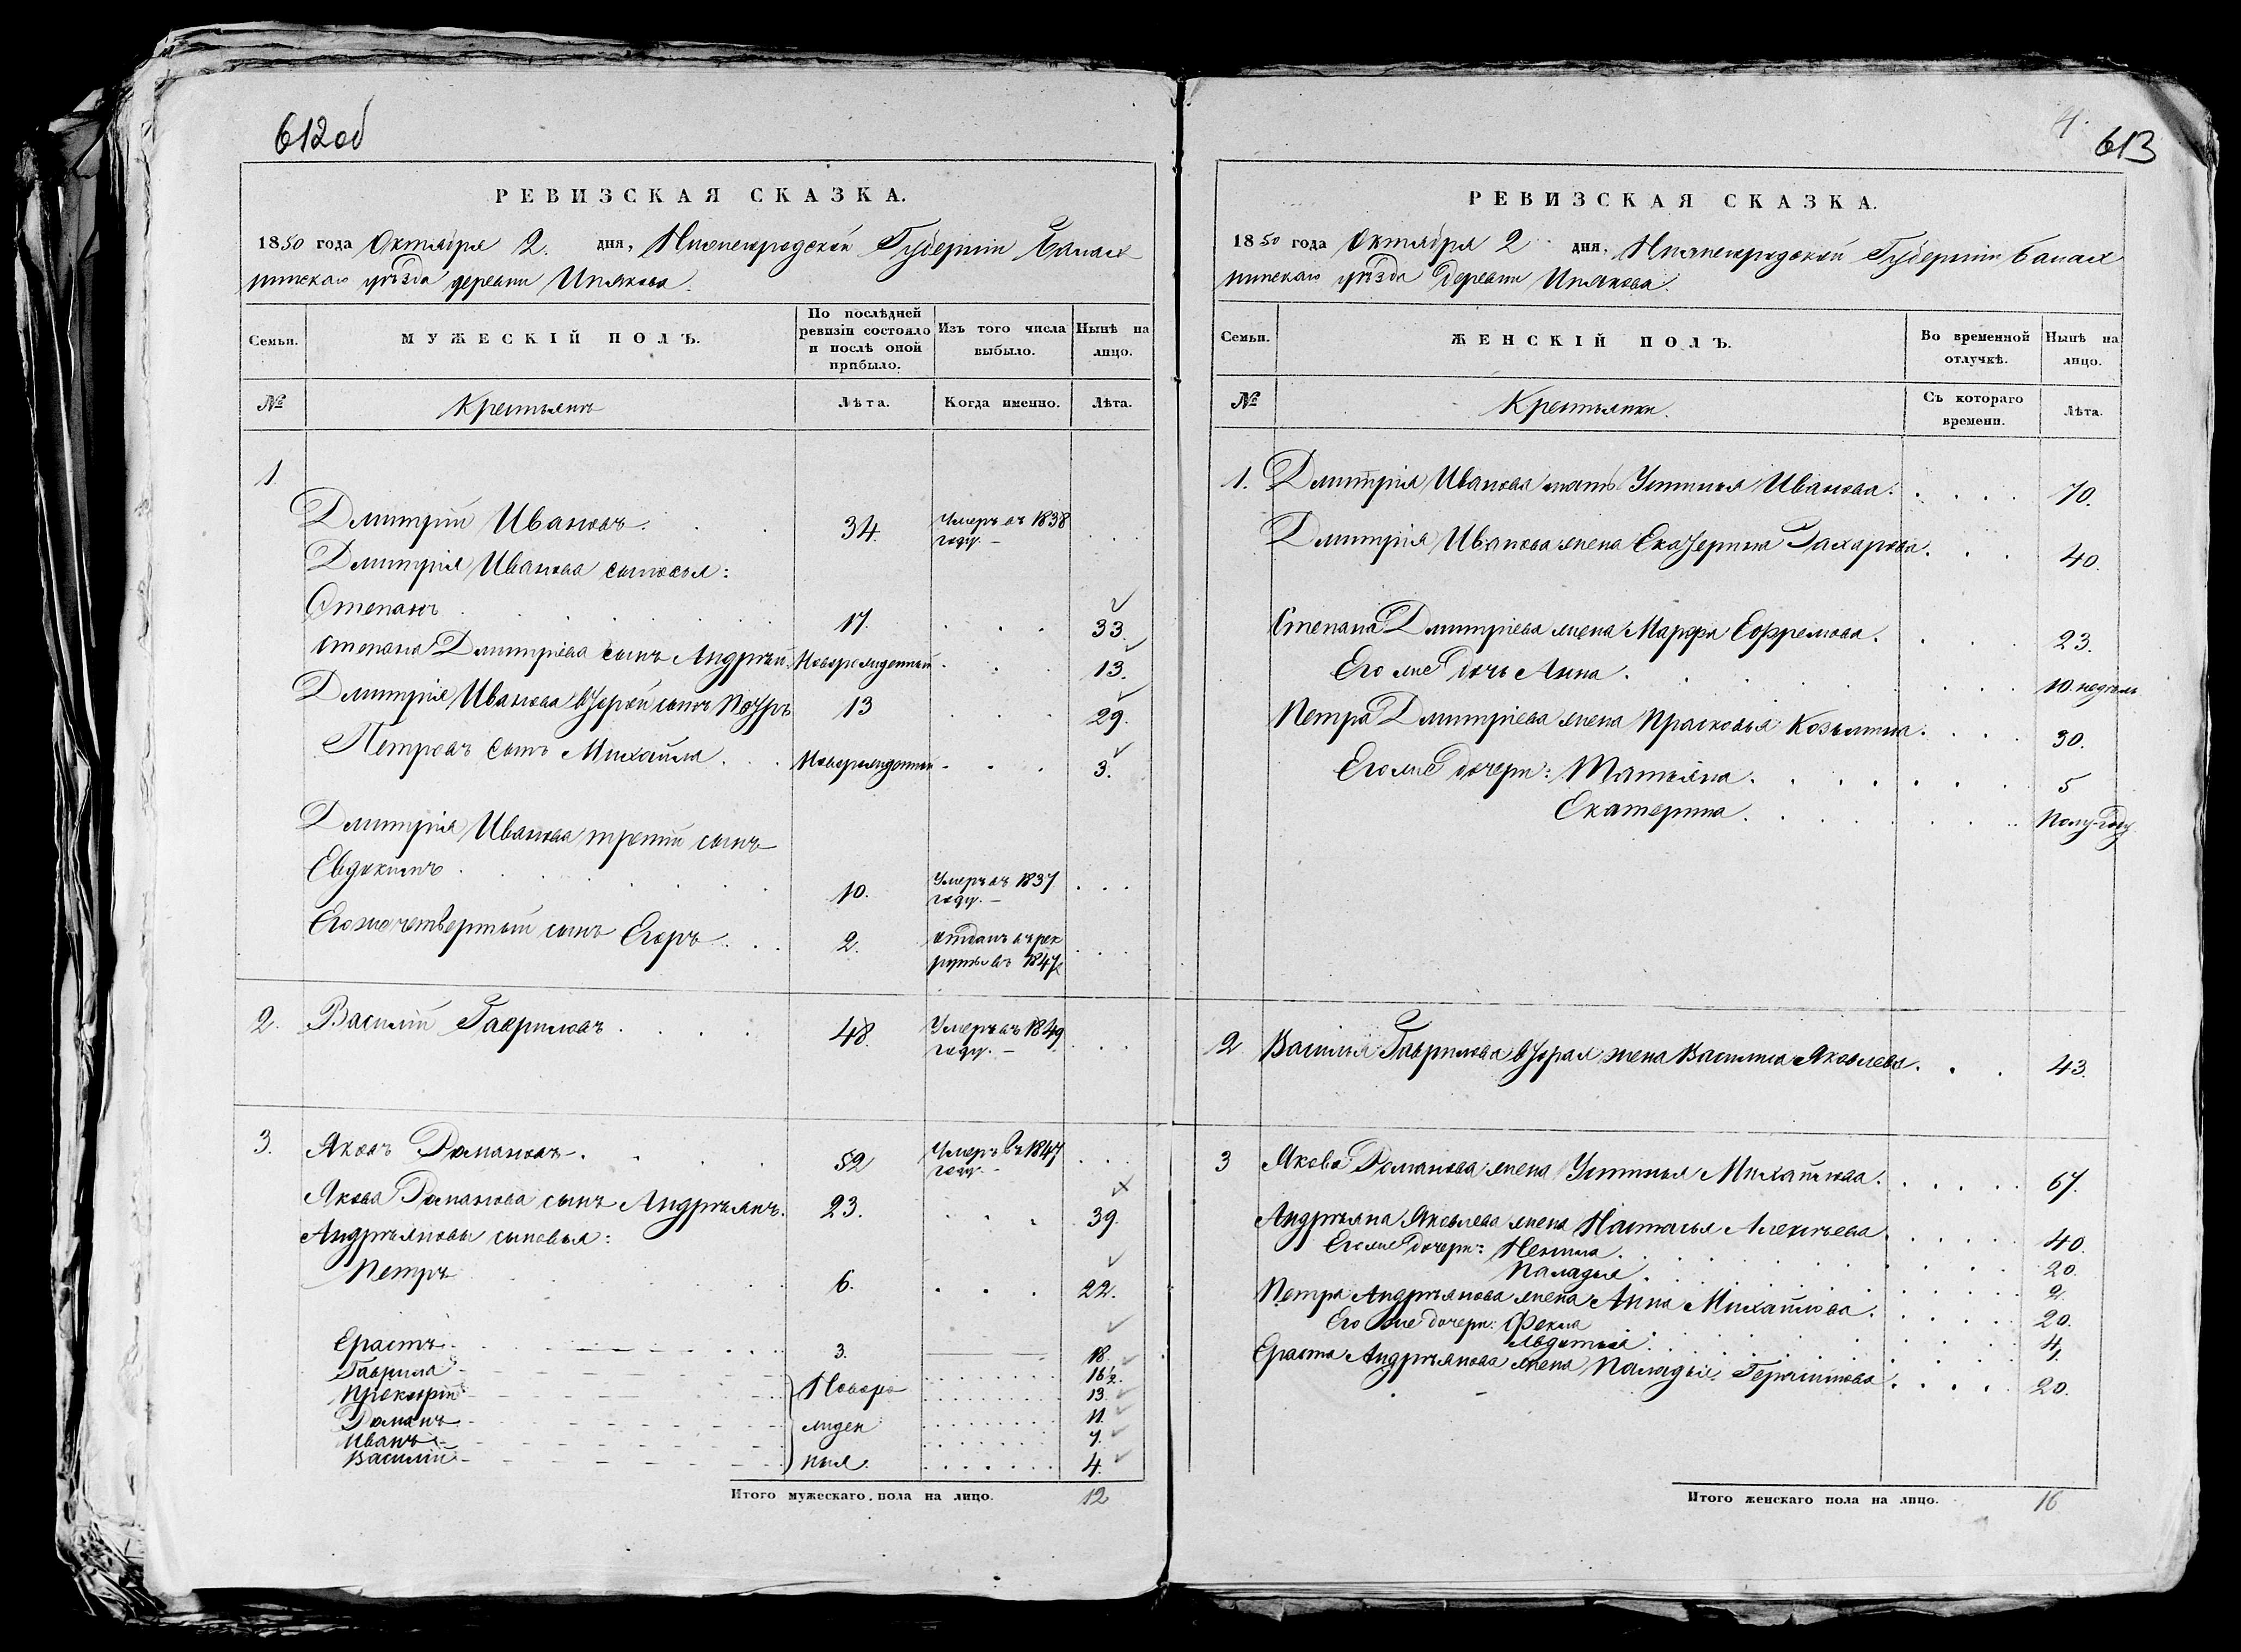 612 об
РЕВИЗСКАЯ СКАЗКА.
1850 года Октября 2. дня, Нижегородской Губернии Балах
нинскаго уѣзда деревни
Семьи.
МУЖЕСКІЙ ПОЛЪ.
По послѣдней ревизіи состояло и послѣ оной прибыло.
Изъ того числа выбыло.
Нынѣ на лицо.
№
Крестьянъ
Лѣта.
Когда именно.
Лѣта.
1.
Дмитрій Ивановъ. 34. Умеръ въ 1838
году. –
Дмитрія Иванова сыновья:
Степанъ 17. 33.
Степана Дмитріева сынъ Андрей. Новорожденный 13.
Дмитрія Иванова второй сынъ Петръ 13 29.
Петровъ сынъ Михайла Новорожденный 3.
Дмитрія Иванова третій сынъ
Евдокимъ 10. Умеръ въ 1837
году. –
Его же четвертый сынъ Егоръ 2. отданъ въ рек
руты въ 1847
2. Василій Гавриловъ 48. Умеръ въ 1849
году. –
3. Яковъ Романовъ 52 Умеръ въ 1847
году. –
Якова Романова сынъ Андреянъ. 23. 39.
Андреяновы сыновья:
Петръ 6. 22.
Ерастъ 3. 18.
Гаврила 16½.
Прокофій Новоро 13.
Романъ жден 11.
Иванъ 7.
Василій ныя. 4.
Итого мужескаго пола на лицо. 12
4.
613
РЕВИЗСКАЯ СКАЗКА.
1850 года Октября 2 дня, Нижегородской Губерніи Балах
нинскаго уѣзда Деревни
Семьи.
ЖЕНСКІЙ ПОЛЪ.
Во временной отлучкѣ.
Нынѣ на лицо.
№
Крестьянки.
Съ котораго времени.
Лѣта.
1. Дмитрія Иванова мать Устинья Иванова. 70.
Дмитрія Иванова жена Екатерина Захарова. 40.
Степана Дмитріева жена Марфа Ефремова. 23.
Его же дочь Анна 10 недѣль
Петра Дмитріева жена Прасковья Козьмина. 30.
Его же дочери: Татьяна. 5
Екатерина. Полу-году
2 Василья Гаврилова вторая жена Василиса Яковлева. 43.
3 Якова Романова жена Устинья Михайлова. 67.
Андреяна Яковлева жена Настасья Алексѣева 40.
Его же дочери: Ненила 20.
Паладья 2.
Петра Андреянова жена Анна Михайлова. 20.
Его же дочери: Фекла 4.
Авдотья 1.
Ераста Андреянова жена Паладья Герасимова 20.
Итого женскаго пола на лицо. 16